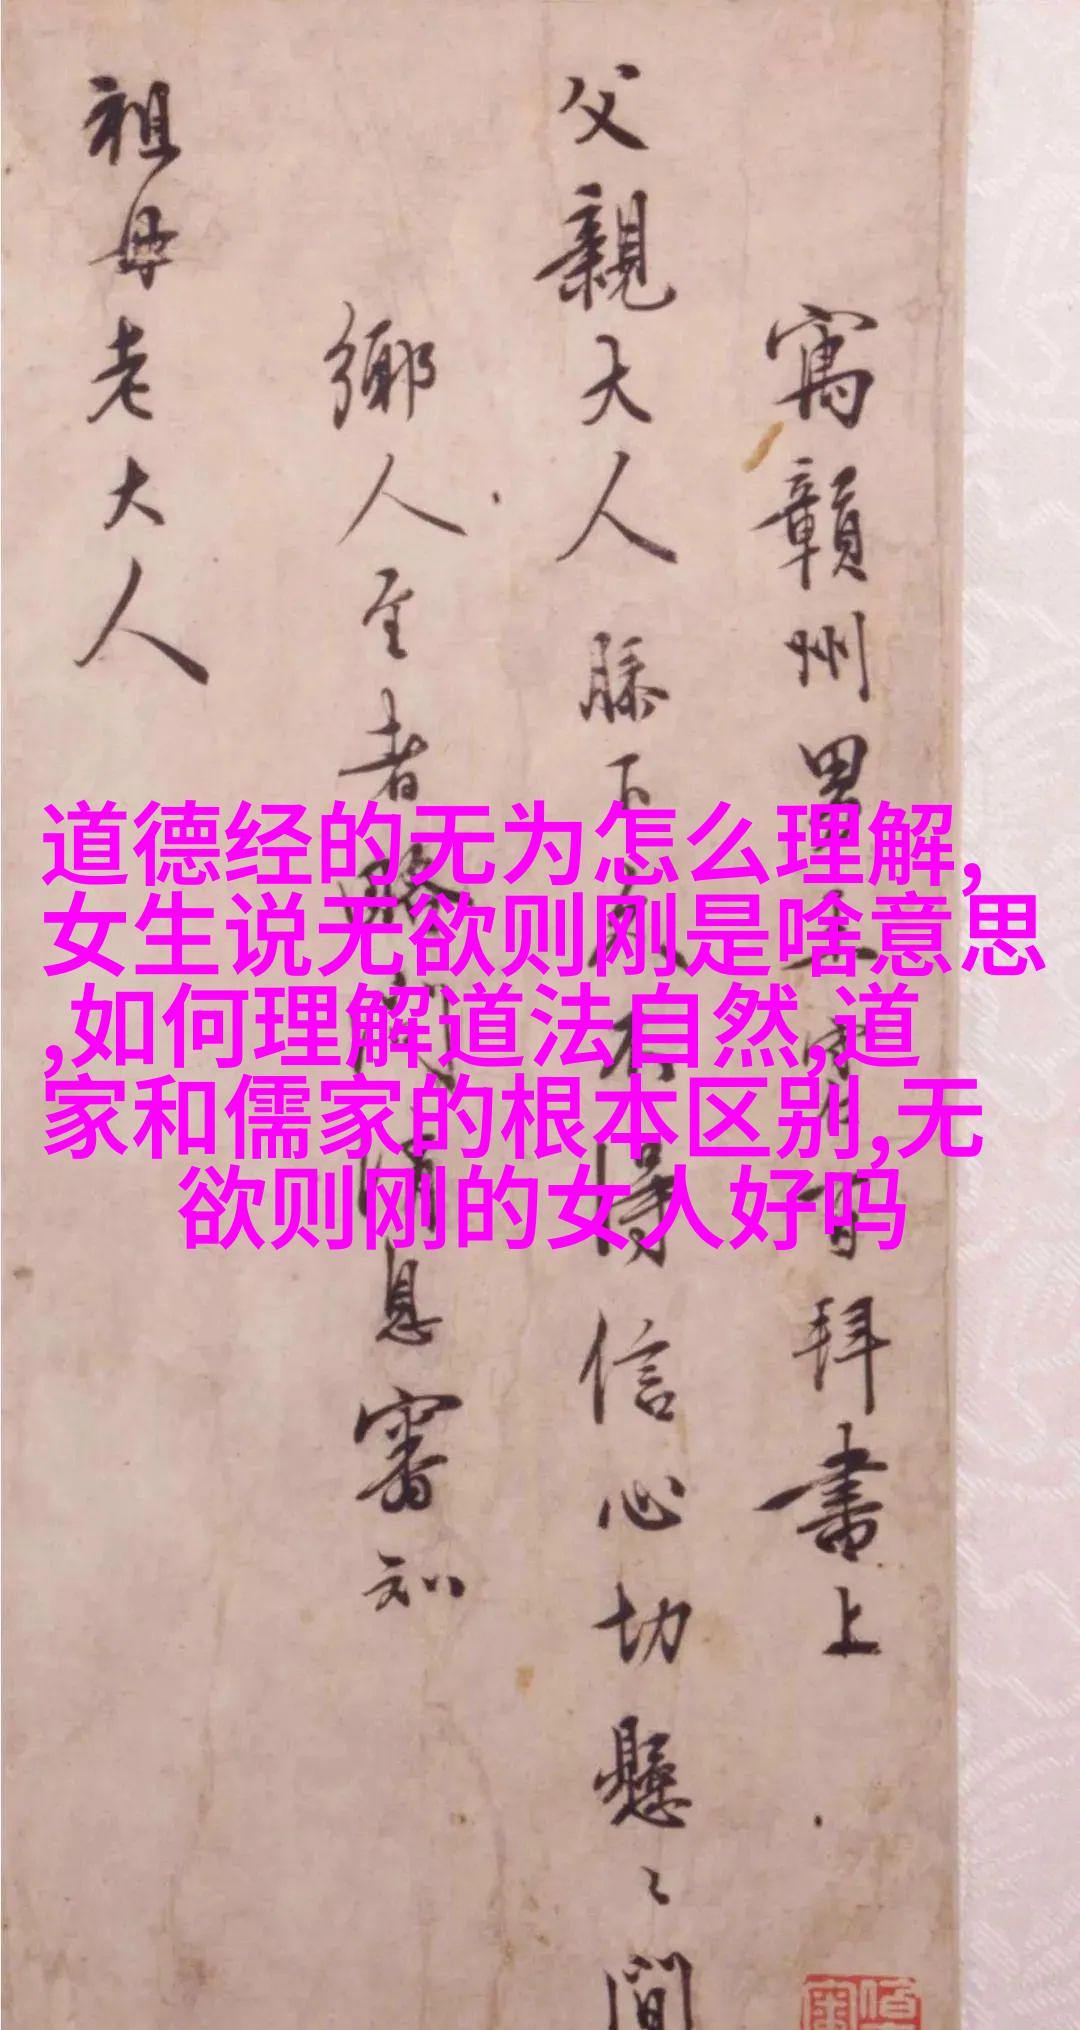 寓贛州男王守仁百拜書上
父親大人膝下久不得信心切懸〻間
鄉人至者略聞消息審知
祖母老大人
道德经的无为怎么理解,
女生说无欲则刚是啥意思
,如何理解道法自然,道
家和儒家的根本区别,无
欲则刚的女人好吗